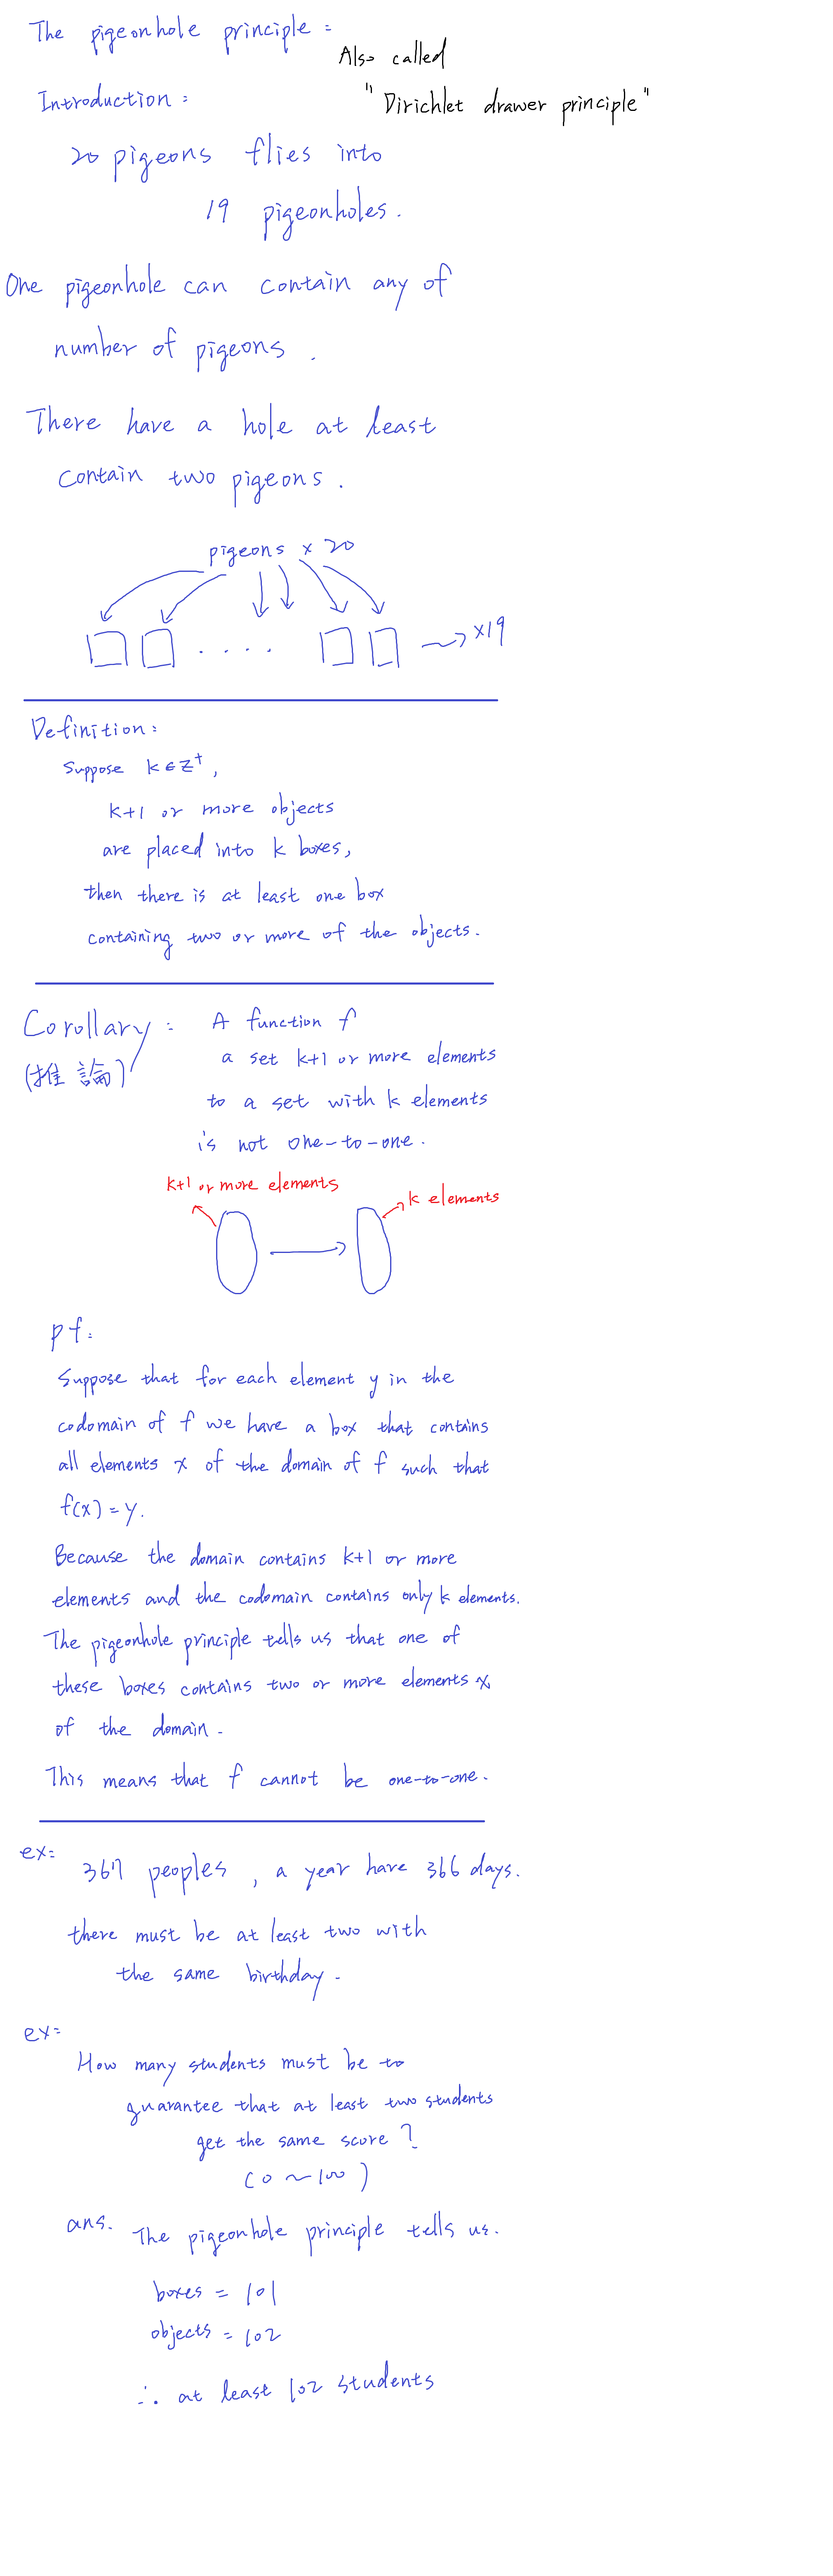 The pigeonhole principle :
Also called
"Dirichlet drawer principle"
Introduction :
20 pigeons flies into
19 pigeonholes.
One pigeonhole can contain any of
number of pigeons .
There have a hole at least
contain two pigeons .
pigeons x 20
. . . .
x19
Definition :
Suppose k∈Z⁺,
k+1 or more objects
are placed into k boxes,
then there is at least one box
containing two or more of the objects.
Corollary :
(推論)
A function f
a set k+1 or more elements
to a set with k elements
is not one-to-one .
k+1 or more elements
k elements
pf :
Suppose that for each element y in the
codomain of f we have a box that contains
all elements x of the domain of f such that
f(x) = y.
Because the domain contains k+1 or more
elements and the codomain contains only k elements.
The pigeonhole principle tells us that one of
these boxes contains two or more elements x
of the domain .
This means that f cannot be one-to-one .
ex:
367 peoples , a year have 366 days.
there must be at least two with
the same birthday .
ex:
How many students must be to
guarantee that at least two students
get the same score ?
(0 ~ 100)
ans. The pigeonhole principle tells us.
boxes = 101
objects = 102
∴ at least 102 students